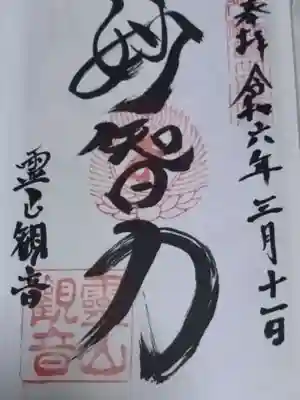 奉拝 令和六年三月十一日
妙智力
霊山観音
霊山
観音